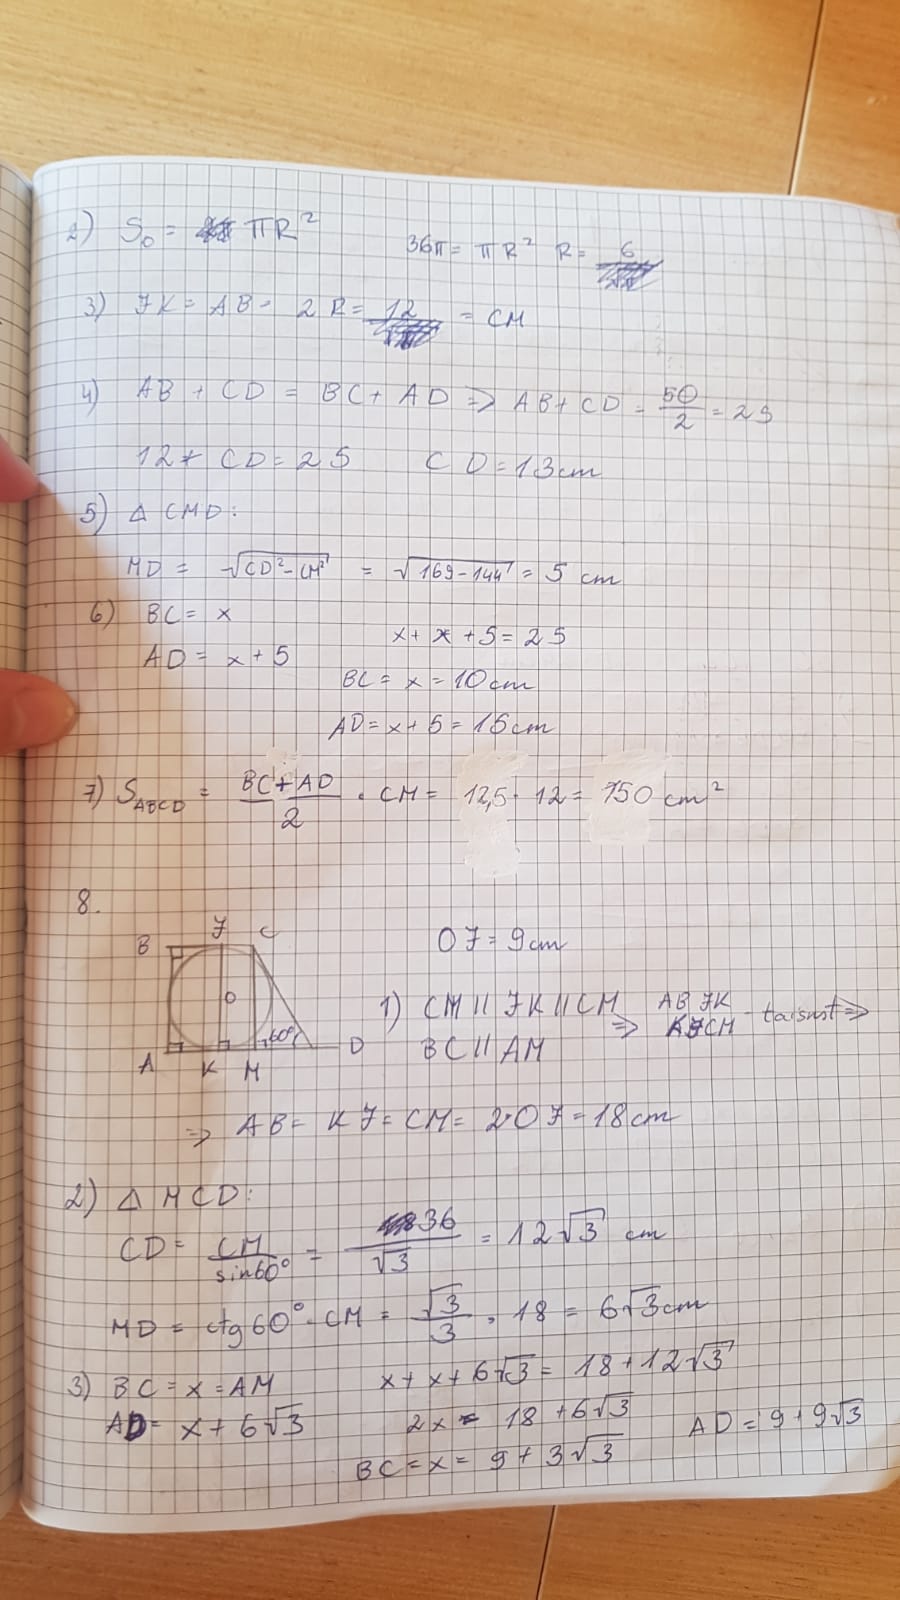 2) S₀ = πR² 36π = πR² R = 6
3) JK = AB = 2R = 12 = CM
4) AB + CD = BC + AD ⇒ AB + CD = 50/2 = 25
12 + CD = 25 CD = 13cm
5) Δ CMD:
MD = √(CD² - CM²) = √(169 - 144) = 5 cm
6) BC = x
x + x + 5 = 25
AD = x + 5
BC = x = 10cm
AD = x + 5 = 15cm
7) S_ABCD = (BC + AD)/2 · CM = 12,5 · 12 = 150 cm²
8.
B J C
OJ = 9cm
O
1) CM || JK || CM ⇒ AB JK
KJCM - taisnst ⇒
BC || AM
60°
A K M D
⇒ AB = KJ = CM = 2·OJ = 18cm
2) Δ MCD:
CD = CM/sin60° = 36/√3 = 12√3 cm
MD = ctg60° · CM = √3/3 · 18 = 6√3cm
3) BC = x = AM x + x + 6√3 = 18 + 12√3
AD = x + 6√3 2x = 18 + 6√3 AD = 9 + 9√3
BC = x = 9 + 3√3